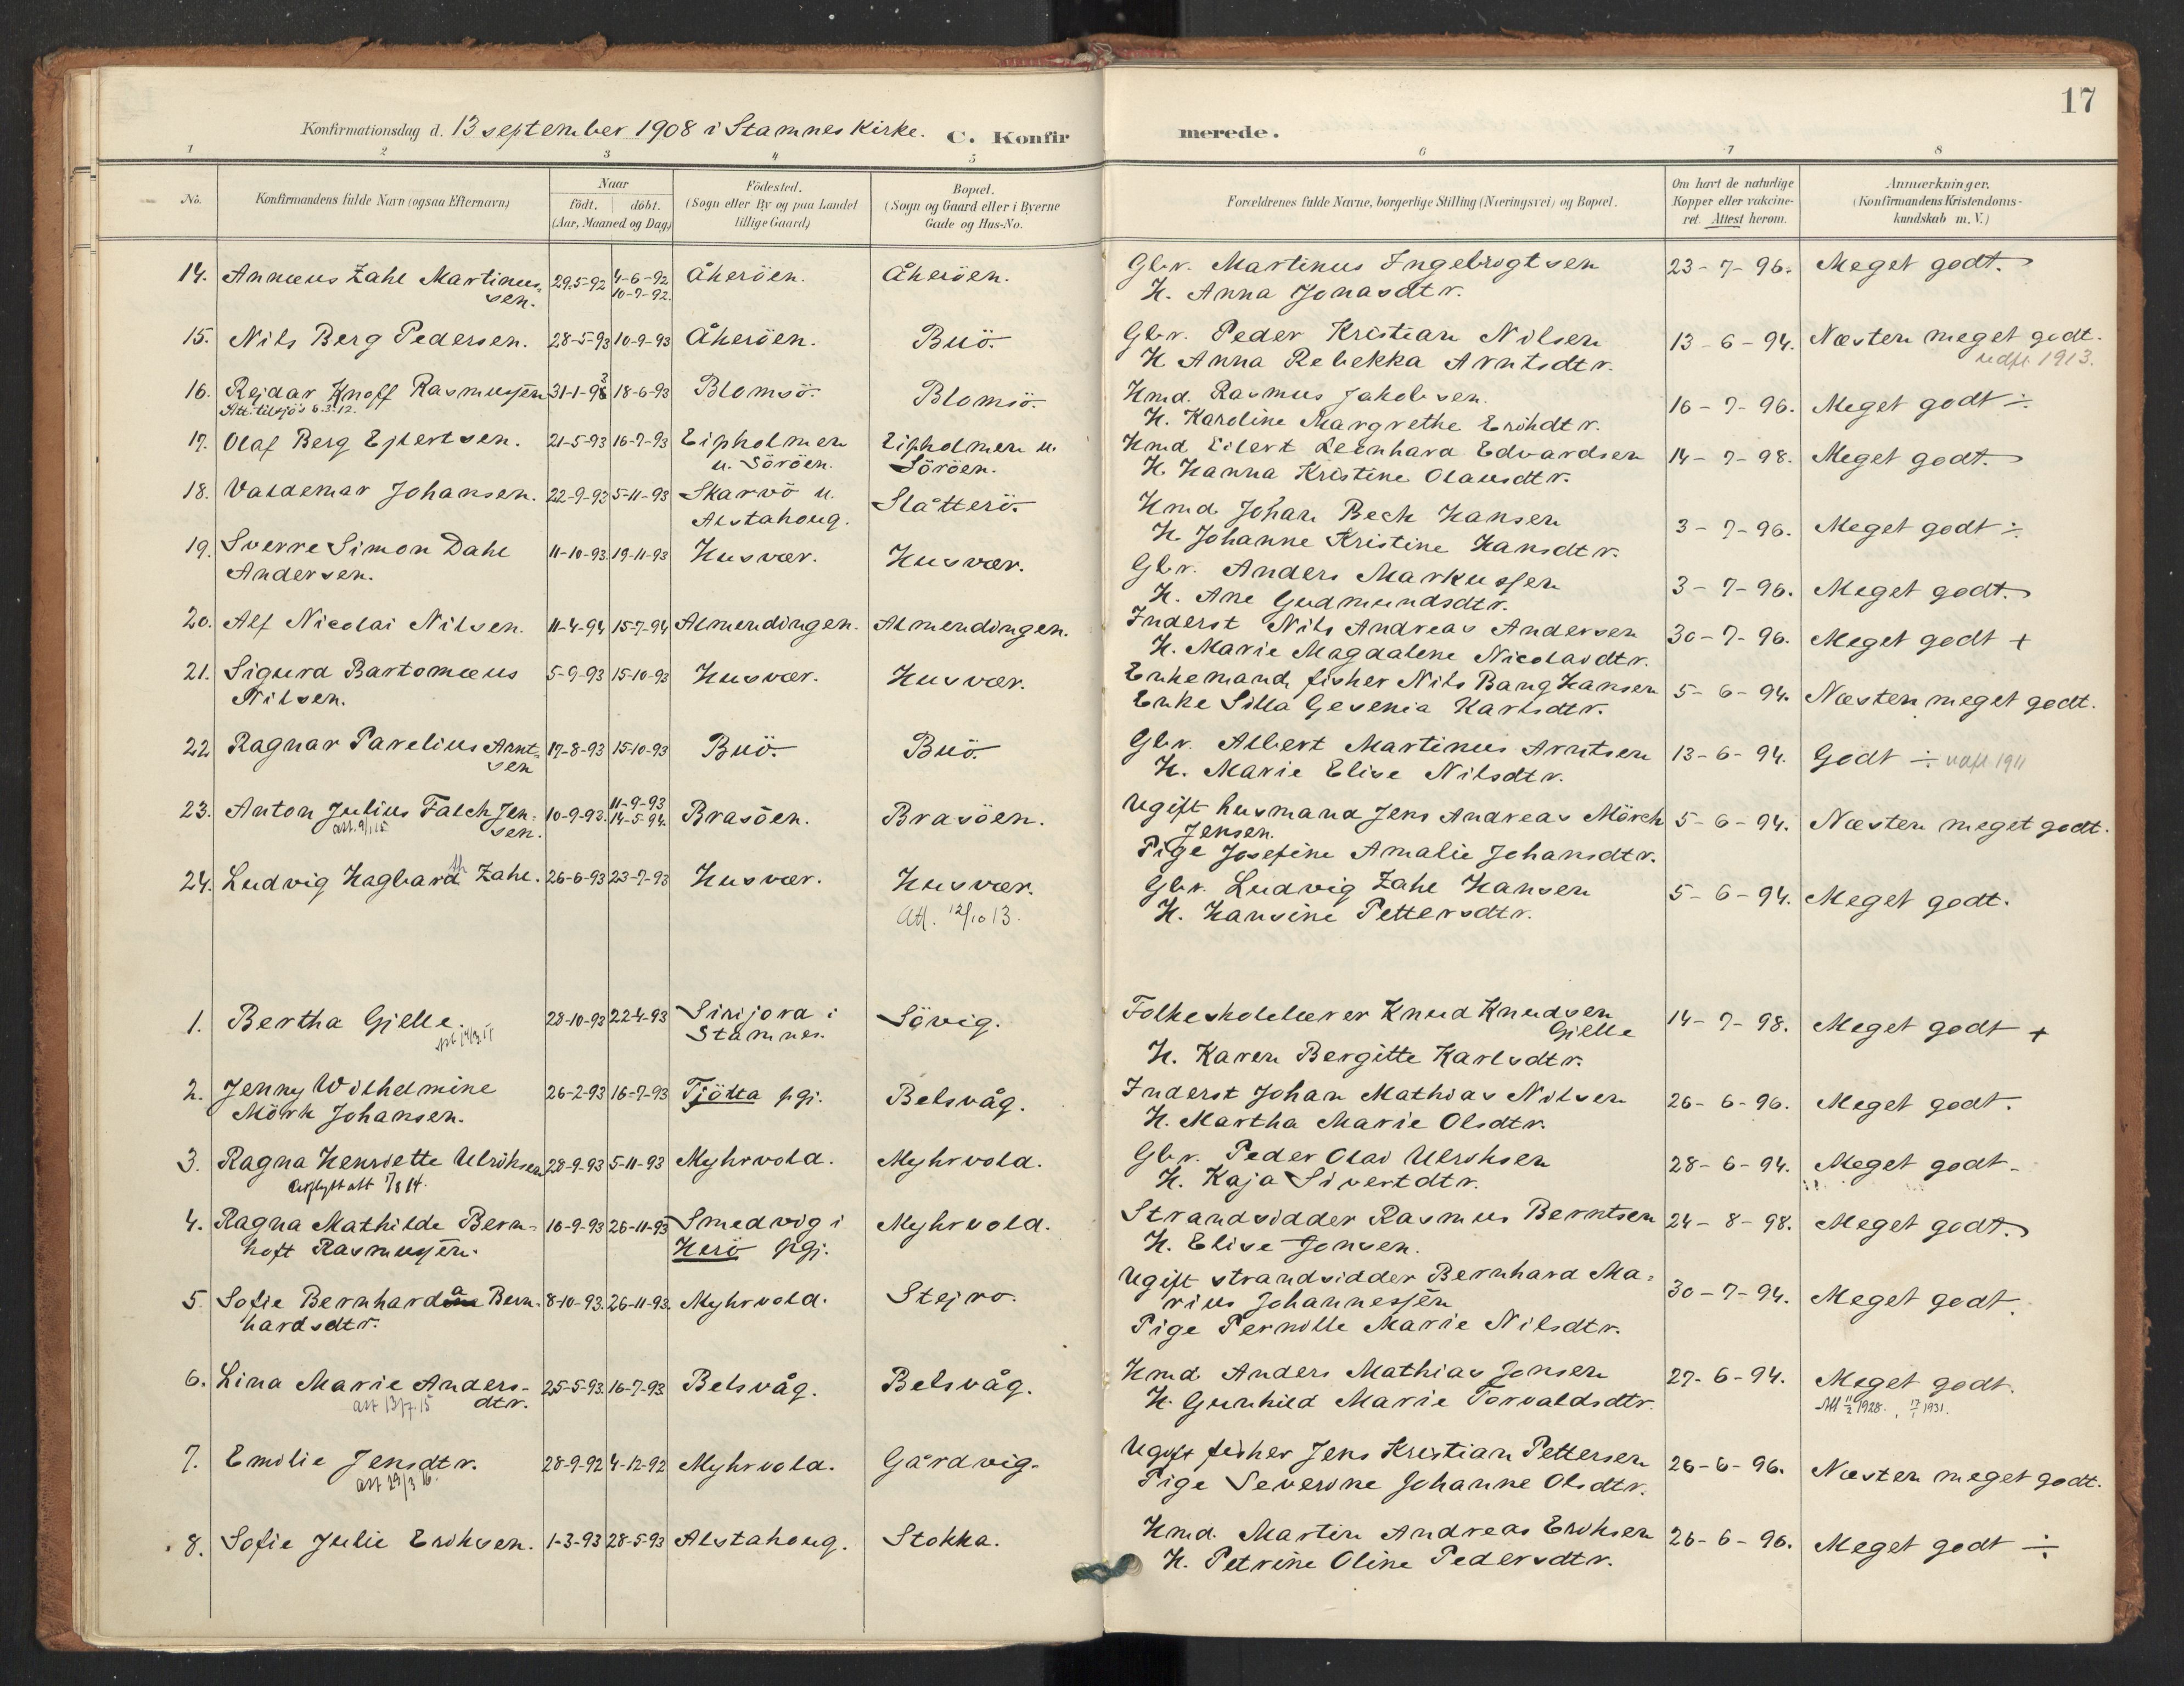 17
Konfirmationsdag d. 13 september 1908 i Stamnes Kirke. C. Konfir merede.
1 2 3 4 5 6 7 8
No.
Konfirmandens fulde Navn (ogsaa Efternavn)
Naar
født. døbt.
(Aar, Maaned og Dag)
Födested.
(Sogn eller By og paa Landet
tillige Gaard)
Bopæl.
(Sogn og Gaard eller i Byerne
Gade og Hus-No.
Forældrenes fulde Navne, borgerlige Stilling (Næringsvei) og Bopæl.
Om havt de naturlige
Kopper eller vakcine-
ret. Attest herom.
Anmærkninger.
(Konfirmandens Kristendoms-
kundskab m. V.)
14. Annæus Zahl Martinus- 29.5-92 4-6-92 Åkerøen. Åkerøen. Gbr. Martinus Ingebrogtsen 23-7-96. Meget godt.
sen. 10-7-92. H. Anna Jonasdtr.
15. Nils Berg Pedersen. 28-5-93 10-9-93 Åkerøen. Buö. Gbr. Peder Kristian Nilsen 13-6-94. Næsten meget godt.
H Anna Rebekka Arntsdtr. 1913.
16. Rejdar Knoff Rasmussen 31-1-93 18-6-93 Blomsö. Blomsö. Hmd. Rasmus Jakobsen. 16-7-96. Meget godt ÷
Att. til sjøs 6.3.12. H. Karoline Margrethe Erikdtr.
17. Olaf Berg Ejlertsen. 21-5-93 16-7-93 Eipholmen Eipholmen u. Hmd Eilert Leenhard Edvardsen 14-7-98. Meget godt.
u. Sörøen. Sörøen. H. Hanna Kristine Olausdtr.
18. Valdemar Johansen. 22-9-93 5-11-93 Skarvö u. Slåtterö. Hmd Johan Beck Hansen 3-7-96. Meget godt ÷
Alstahoug. H. Johanne Kristine Hansdtr.
19. Sverre Simon Dahl 11-10-93. 19-11-93 Husvær. Husvær. Gbr. Anders Markussen 3-7-96. Meget godt.
Andersen. H. Ane Gudmundsdtr.
20. Alf Nicolai Nilsen. 11-4-94 15-7-94 Almendingen. Almendingen. Inderst Nils Andreas Andersen 30-7-96. Meget godt +
H. Marie Magdalene Nicolaidtr.
21. Sigurd Bartomæus 5-9-93 15-10-93 Husvær. Husvær. Enkemand, fisker Nils Bang Hansen 5-6-94. Næsten meget godt.
Nilsen. Enke Silla Gesenia Karlsdtr.
22 Ragnar Parelius Arnt- 17-8-93 15-10-93 Buö. Buö. Gbr. Albert Martinus Arntsen 13-6-94. Godt ÷ 1911
sen H. Marie Elise Nilsdtr.
23. Anton Julius Falch Jen- 10-9-93. 11-9-93 Brasøen. Brasøen. Ugift husmand Jens Andreas Mörch 5-6-94. Næsten meget godt.
sen. 14-5-94. Jensen.
Pige Josefine Amalie Johansdtr.
24. Ludvig Hagbard Zahl. 26-6-93 23-7-93 Husvær. Husvær. Gbr. Ludvig Zahl Hansen 5-6-94. Meget godt.
Att. 12/10 13. H. Hansine Pettersdtr.
1. Bertha Gjelle. 28-10-93 22-4-93 Sinijora i Søvig. Folkeskolelærer Knud Knudsen 14-7-98. Meget godt +
Stamnes. Gjelle
H. Karen Bergitte Karlsdtr.
2. Jenny Wilhelmine 26-2-93 16-7-93 Tjötta pgj. Belsvåg. Inderst Johan Mathias Nilsen 26-6-96. Meget godt.
Mörk Johansen. H. Martha Marie Olsdtr.
3. Ragna Henriette Ulriksen 28-9-93 5-11-93 Myhrvold. Myhrvold. Gbr. Peder Olai Ulriksen 28-6-94. Meget godt.
H. Kaja Sivertdtr.
4. Ragna Mathilde Bern- 16-9-93 26-11-93 Smedvig i Myhrvold. Strandsidder Rasmus Berntsen 24-8-98. Meget godt.
hoft Rasmussen. Herö pgj. H. Elise Jonsen.
5. Sofie Bernharda Bern- 8-10-93. 26-11-93. Myhrvold. Stejro. Ugift strandsidder Bernhard Ma- 30-7-94. Meget godt.
hardsdtr. rius Johannessen
Pige Pernille Marie Nilsdtr.
6. Lina Marie Anders- 25-5-93. 16-7-93 Belsvåg. Belsvåg. Hmd Anders Mathias Jonsen 27-6-94. Meget godt.
dtr. H. Gunhild Marie Torvaldsdtr.
att 13/7.15 Att 11/2 1928. 17/1 1931.
7. Emilie Jensdtr. 28-9-92 4-12-92 Myhrvold. Gårdvig. Ugift fisker Jens Kristian Pettersen 26-6-96. Næsten meget godt.
att 29/3 16. Pige Severine Johanne Olsdtr.
8. Sofie Julie Eriksen. 1-3-93 28-5-93 Alstahoug. Stokka. Hmd. Martin Andreas Eriksen 26-6-96. Meget godt ÷
H. Petrine Oline Pedersdtr.